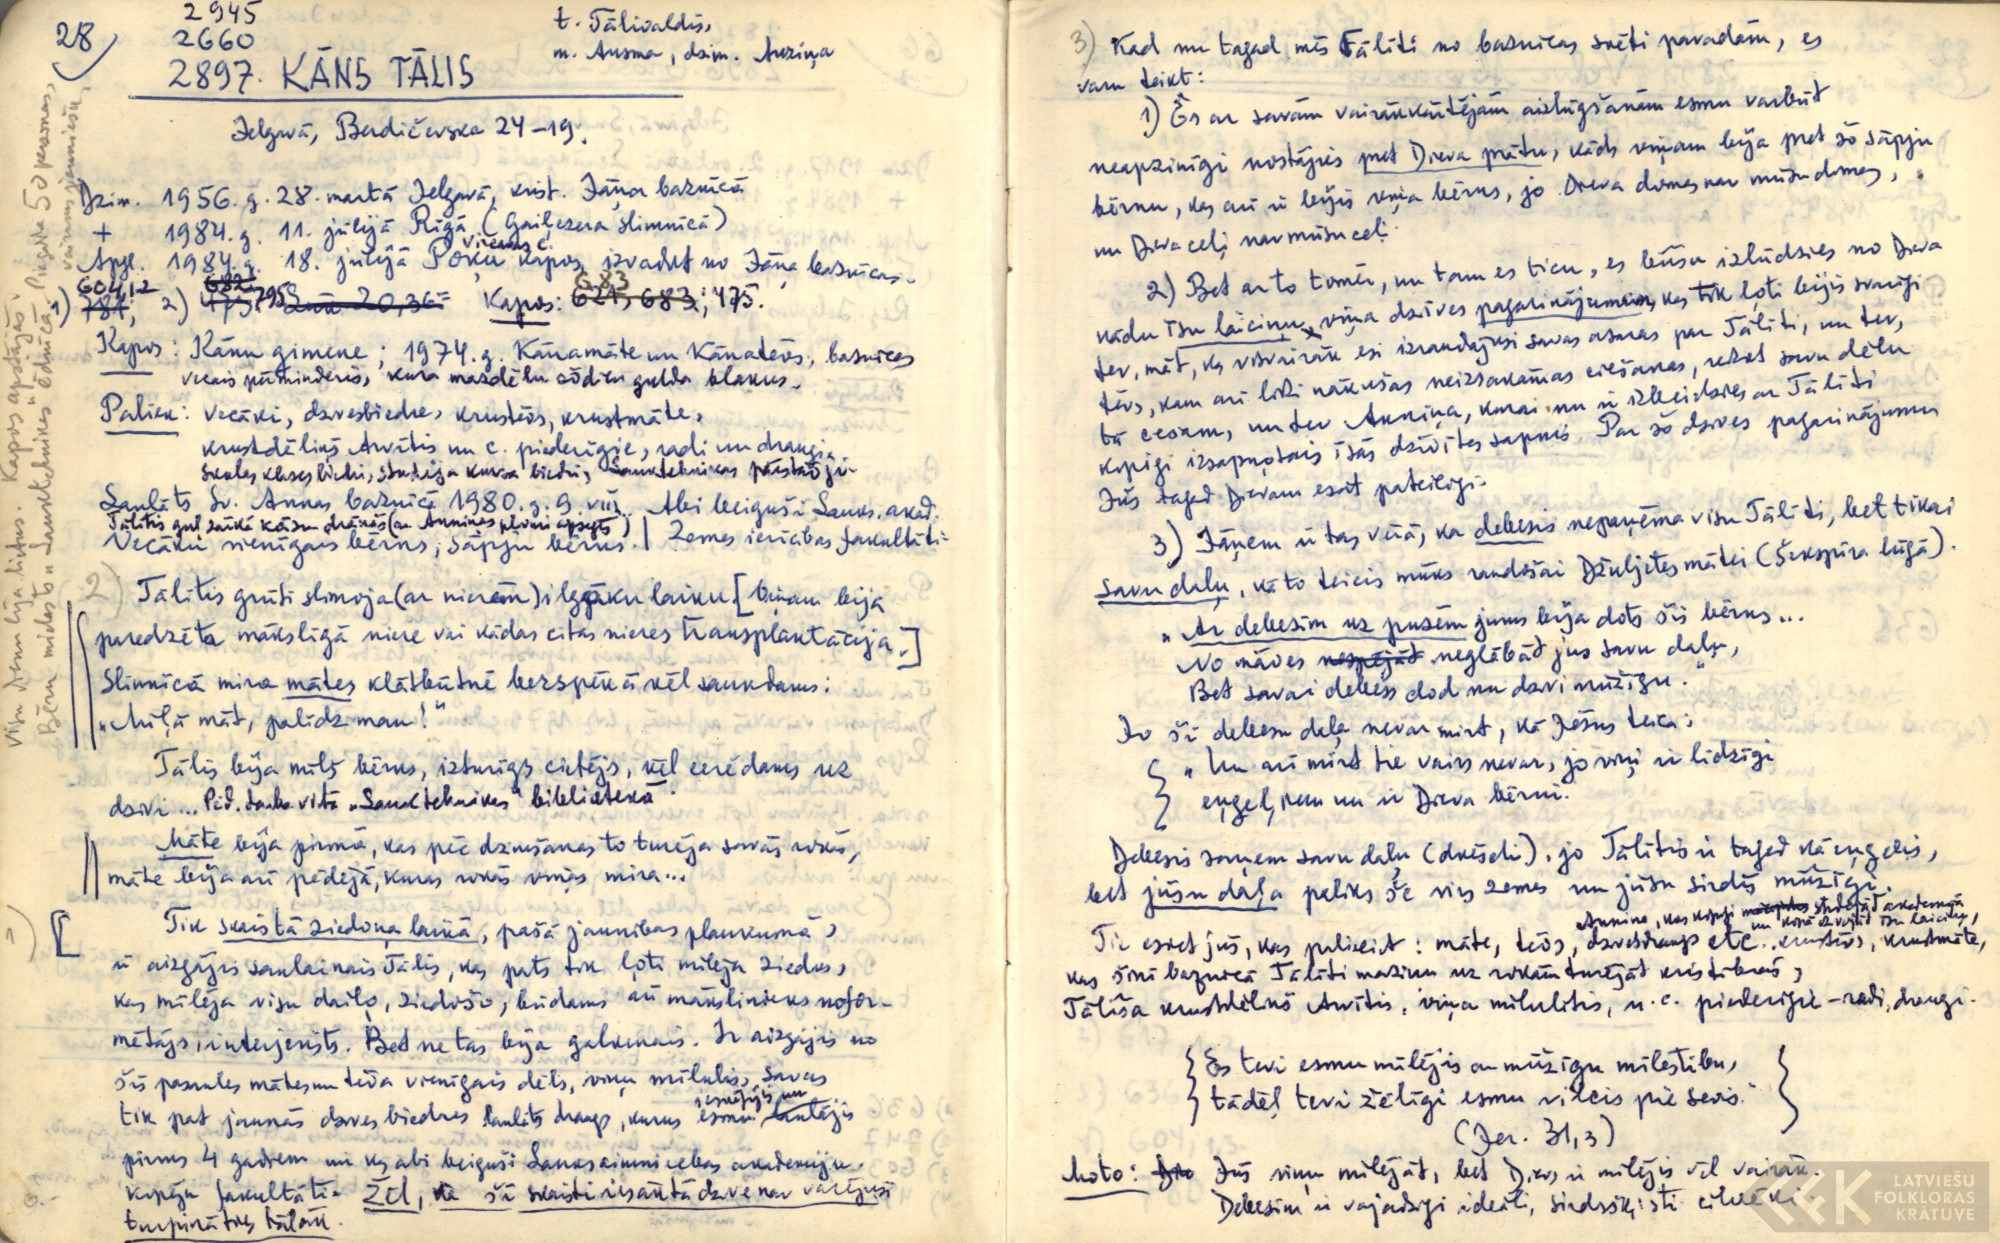 28
2945
2660
2897. KĀNS TĀLIS
t. Tālivaldis,
m. Ausma, dzim. Auziņa
Jelgavā, Berdičevska 24-19.
Dzim. 1956.g. 28. martā Jelgavā, krist. Jāņa baznīcā
+ 1984.g. 11. jūlijā Rīgā (Gaiļezera slimnīcā)
Apgl. 1984.g. 18. jūlijā kapos, izvadot no Jāņa baznīcas.
604,1,2 682 683
1) 787; 2) 475, 795 20,36= Kapos: 621, 683; 475.
Kapos: Kānu ģimene; 1974.g. Kānamāte un Kānatēvs, baznīcas
vecais pērminderis, kura mazdēlu šodien gulda blakus.
Paliek: vecāki, dzīvesbiedre, krusttēvs, krustmāte,
krustdēliņš Arvītis un c. piederīgie, radi un draugi,
skolas klasesbiedri, studija kursa biedri, Lauktehnikas pārstāvji.
Laulāts Sv. Annas baznīcā 1980.g. 9. VIII. Abi beiguši Lauks. akad.
Tālītis guļ zārkā kāzu drānās (ar Anniņas plīvuri apsegts)
Vecāku vienīgais bērns, sāpju bērns. | Zemes ierīcības fakultāti=
2) Tālītis grūti slimoja (ar nierēm) ilgāku laiku [Viņam bija
paredzēta mākslīgā niere vai kādas citas nieres transplantācija.]
Slimnīcā mira mātes klātbūtnē bezspēkā vēl saukdams:
"Mīļā māt, palīdz man!"
Tālis bija mīļš bērns, izturīgs cietējs, vēl cerēdams uz
dzīvi... Pēd. darba vieta "Lauktehnikas" bibliotekā.
Māte bija pirmā, kas pēc dzimšanas to turēja savās rokās,
māte bija arī pēdējā, kuras rokās viņš mira...
[ Tik skaistā ziedoņa laikā, pašā jaunības plaukumā,
ir aizgājis saulainais Tālis, kas pats tik ļoti mīlēja ziedus,
kas mīlēja visu daiļo, ziedošo, būdams arī mākslinieks nofor-
mētājs, interjerists. Bet ne tas bija galvenais. Ir aizgājis no
šīs pasaules mātes un tēva vienīgais dēls, viņu mīlulis, savas
tik pat jaunās dzīves biedres laulāts draugs, kurus esmu iesvētījis un laulājis
pirms 4 gadiem un kas abi beiguši Lauksaimniecības akadēmiju.
kopēju fakultāti. Žēl, ka šī skaisti iesāktā dzīve nav varējusi
turpināties tālāk.
Visu dienu lija lietus. Kapos apstājās.
Bērnu mielasts "Lauktehnikas" ēdnīcā. Piegāja 50 personas,
vairums jaunieši.
3) Kad nu tagad mēs Tālīti no baznīcas svēti pavadām, es
varu teikt:
1) Es ar savām vairākkārtējām aizlūgšanām esmu varbūt
neapzinīgi nostājies pret Dieva prātu, kāds viņam bija pret šo sāpju
bērnu, kas arī ir bijis viņa bērns, jo Dieva domas nav mūsu domas,
un Dieva ceļi nav mūsu ceļi.
2) Bet ar to tomēr, un tam es ticu, es būšu izlūdzies no Dieva
kādu īsu laiciņu, viņa dzīves pagarinājumam, kas tik ļoti bijis svarīgi
tev, māt, ka visvairāk esi izraudājusi savas asaras par Tālīti, un tev,
tēvs, kam arī līdzi nākušas neizsakāmas ciešanas, redzot savu dēlu
tā ciešam, un tev Anniņa, kurai nu ir izbeidzies ar Tālīti
kopīgi izsapņotais īsās dzīvītes sapnis. Par šo dzīves pagarinājumu
Jūs tagad Dievam esat pateicīgi.
3) Jāņem ir tas vērā, ka debesis nepaņēma visu Tālīti, bet tikai
savu daļu, kā to teicis mūks raudošai Džuljetes mātei (Šekspīra lugā).
"Ar debesīm uz pusēm jums bija dots šis bērns...
No nāves nespējāt neglābāt jūs savu daļu,
Bet savai debess dod nu dzīvi mūžīgu."
Jo šī debesu daļa nevar mirt, kā Jēzus teica:
"Un arī mirt tie vairs nevar, jo viņi ir līdzīgi
eņģeļiem un ir Dieva bērni."
Debesis saņem savu daļu (dvēseli), jo Tālītis ir tagad kā eņģelis,
bet jūsu daļa paliks še virs zemes un jūsu sirdīs mūžīgi.
Anniņa, kas kopīgi studējāt akadēmijā
un kopā dzvojāt īsu laiciņu,
Tie esiet jūs, kas paliekat: māte, tēvs, dzīvesdraugs etc... krusttēvs, krustmāte,
kas šinī baznīcā Tālīti maziņu uz rokām turējāt kristībās,
Tālīša krustdēliņš Arvītis, viņa mīlulītis, u.c. piederīgie - radi, draugi.
{ Es tevi esmu mīlējis ar mūžīgu mīlestību,
tādēļ tevi žēlīgi esmu vilcis pie sevis. }
(Jer. 31,3)
Moto: Jūs viņu mīlējāt, bet Dievs ir mīlējis vēl vairāk.
Debesīm ir vajadzīgi ideāli, sirdsšķīsti cilvēki.
LATVIEŠU
FOLKLORAS
KRĀTUVE